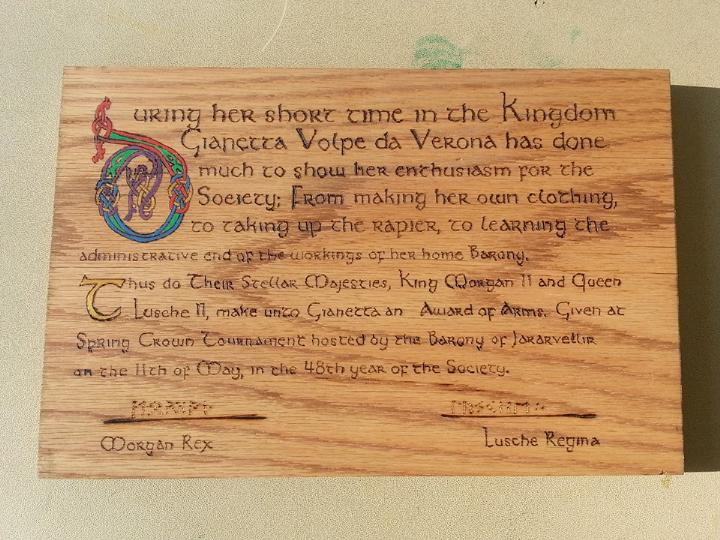 During her short time in the Kingdom
Gianetta Volpe da Verona has done
much to show her enthusiasm for the
Society; From making her own clothing,
to taking up the rapier, to learning the
administrative end of the workings of her home Barony.
Thus do Their Stellar Majesties, King Morgan II and Queen
Lusche II, make unto Gianetta an Award of Arms. Given at
Spring Crown Tournament hosted by the Barony of Jararvellir
on the 11th of May, in the 48th year of the Society.
Morgan Rex
Lusche Regina